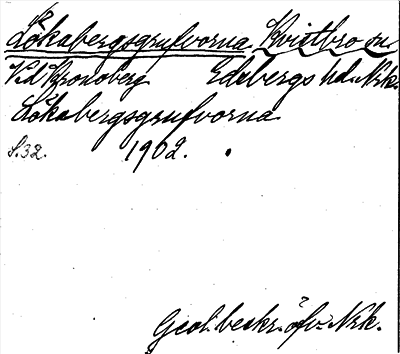 Lökabergsgrufvorna Kvistbro sn
Vid Kronoberg Edsbergs hd. Nrk.
Lökabergsgrufvorna
S. 32. 1902.
Geol. beskr. öfv. Nrk.